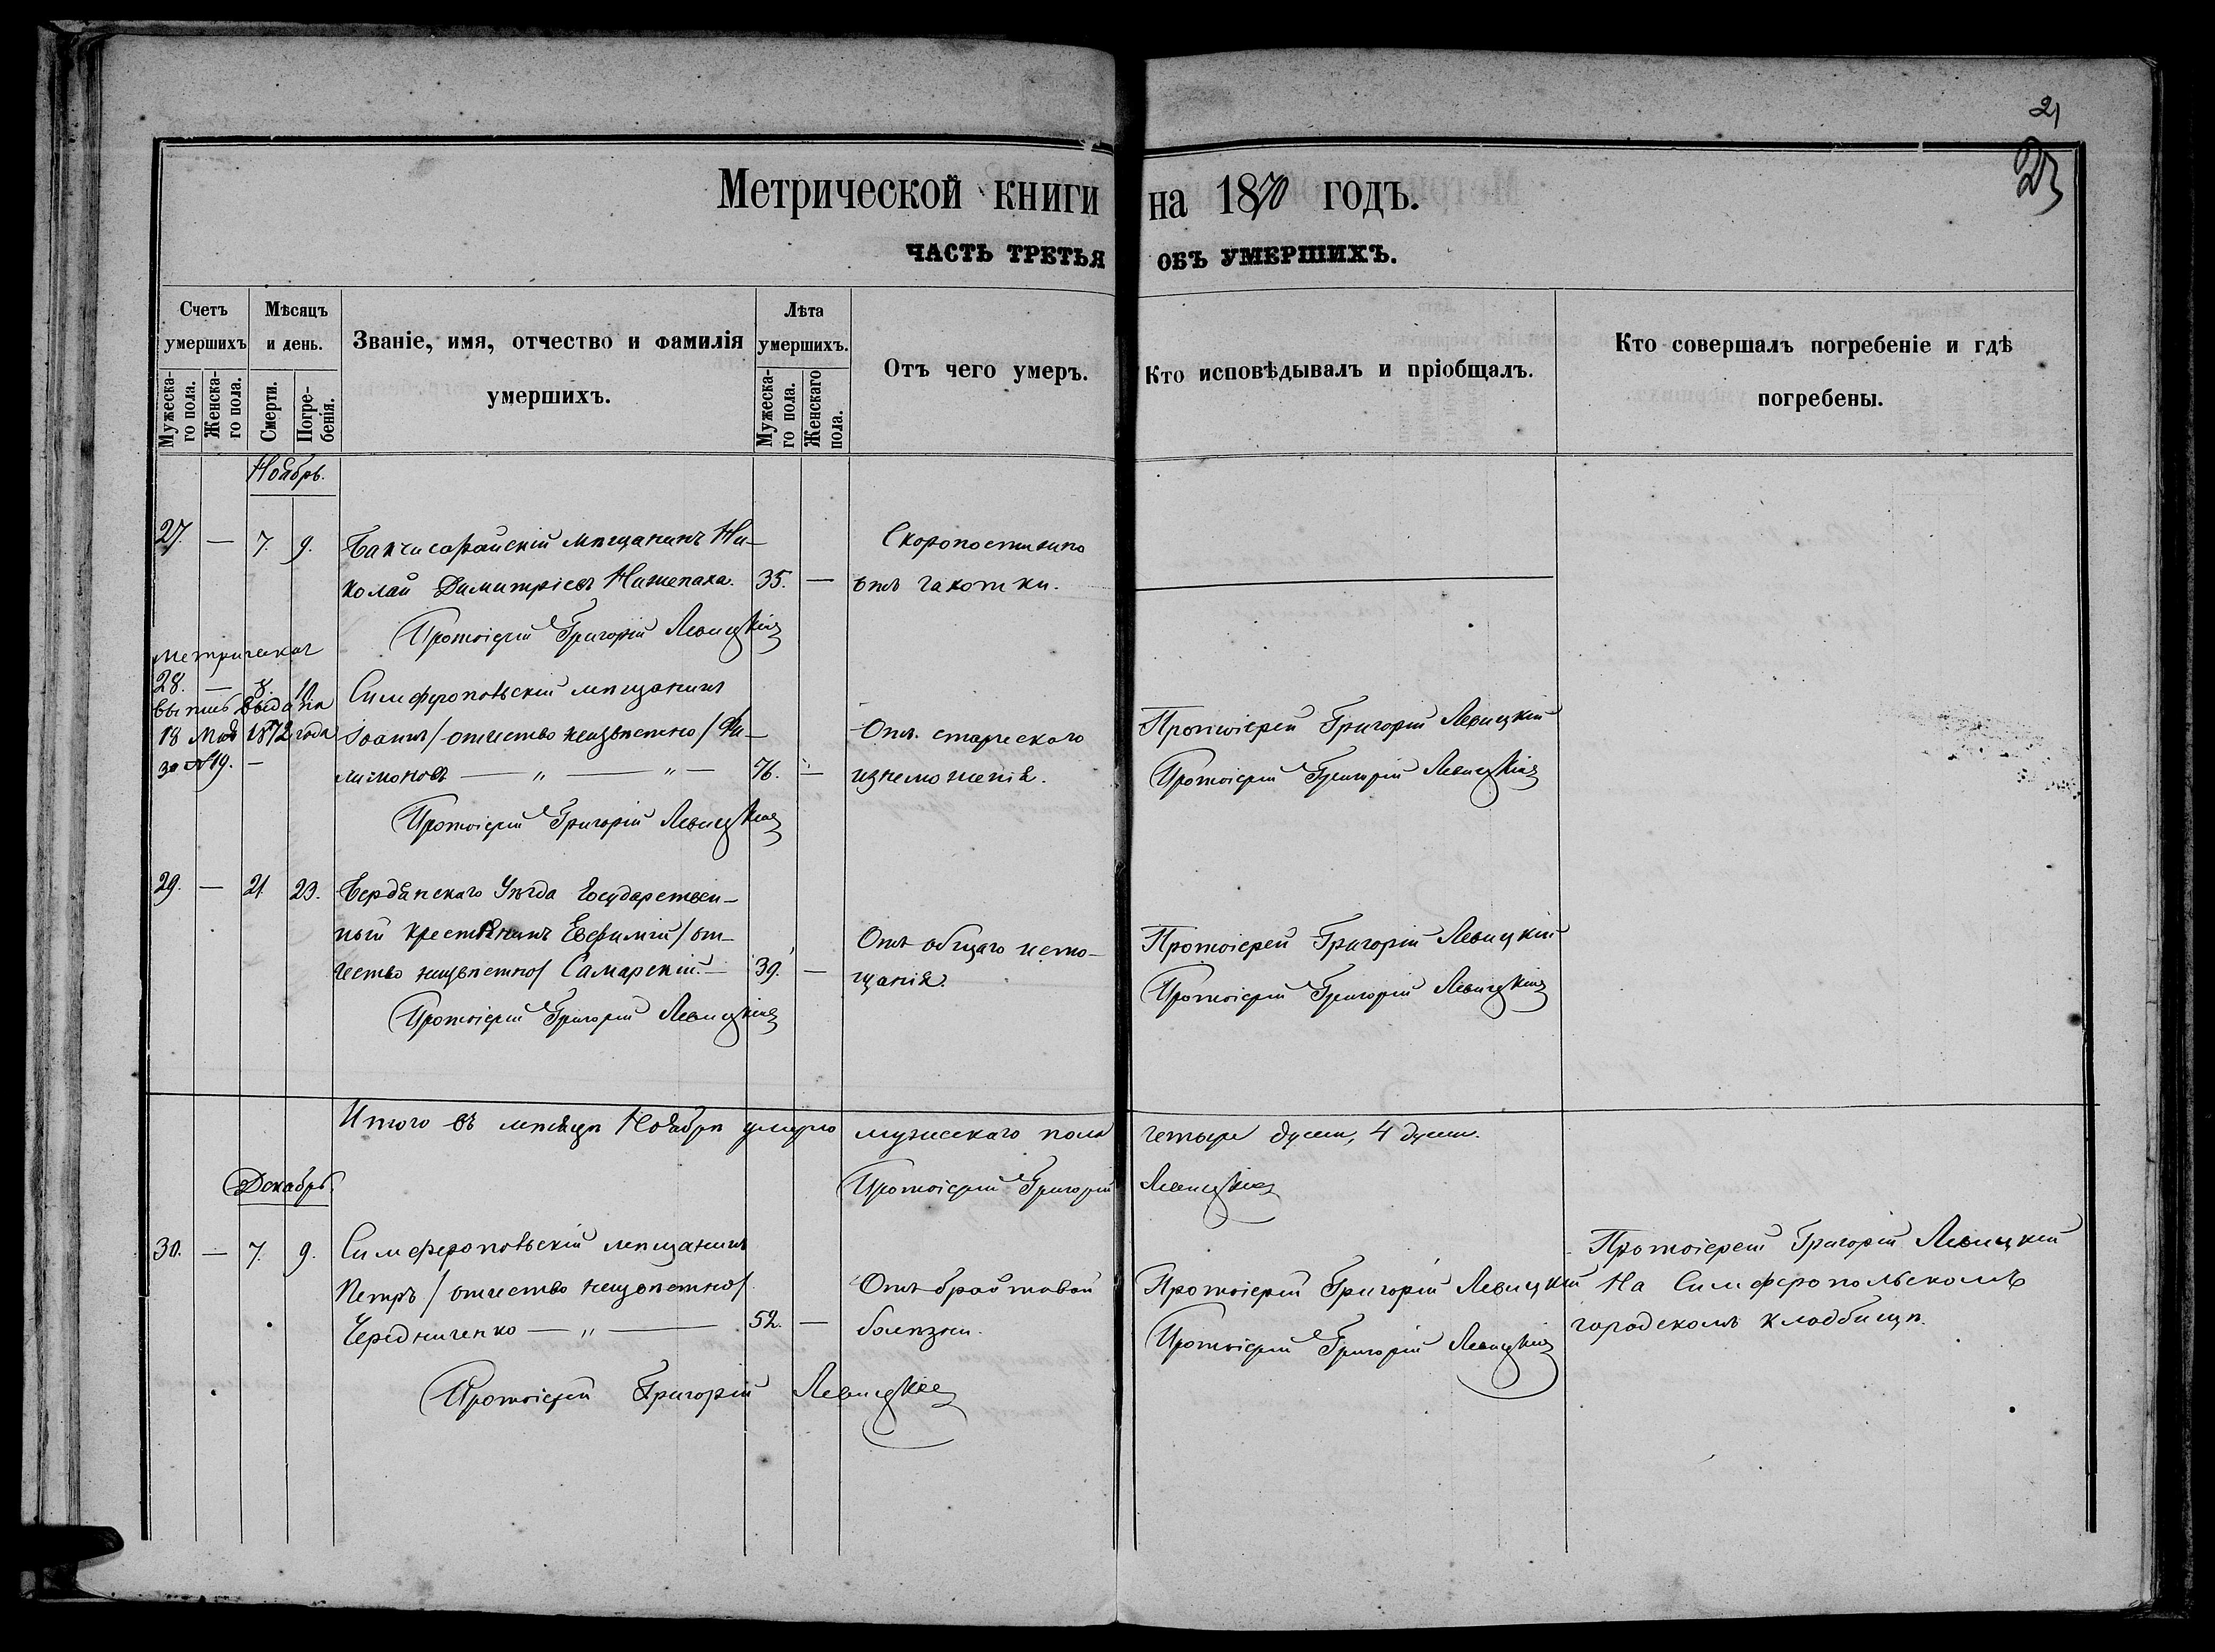 21
23
Метрической книги на 1870 годъ.
ЧАСТЬ ТРЕТЬЯ ОБЪ УМЕРШИХЪ.
Счетъ умершихъ
Мѣсяцъ и день.
Званіе, имя, отчество и фамилія умершихъ.
Лѣта умершихъ.
Отъ чего умеръ.
Кто исповѣдывалъ и пріобщалъ.
Кто совершалъ погребеніе и гдѣ погребены.
Мужеска-го пола.
Женска-го пола.
Смерти.
Погре-бенія.
Мужеска-го пола.
Женскаго пола.
Ноябрь.
27. — 7. 9. Бахчисарайскій мѣщанинъ Ни- Скоропостижно
колай Димитріевъ 35. — отъ чахотки.
Протоіерей Григорій Левицкій
Метрическая
28. — 8. 10. Симферопольскій мѣщанинъ
выпись выдана
18 Мая 1872 года Іоаннъ / отчество неизвѣстно / Фи- Отъ старческаго Протоіерей Григорій Левицкій
за №19. — лимоновъ — „ — „ — 76. — изнеможенія. Протоіерей Григорій Левицкій
Протоіерей Григорій Левицкій
29. — 21 23. Бердянскаго Уѣзда Государствен-
ный крестьянинъ Евфимій / от- Отъ общаго исто- Протоіерей Григорій Левицкій
чество неизвѣстно / Самарскій. — 39. — щанія. Протоіерей Григорій Левицкій
Протоіерей Григорій Левицкій
Итого въ мѣсяцѣ Ноябрѣ умерло мужескаго пола четыре души, 4 души.
Декабрь. Протоіерей Григорій Левицкій
30. — 7. 9. Симферопольскій мѣщанинъ Протоіерей Григорій Левицкій
Петръ / отчество неизвѣстно / Отъ брайтовой Протоіерей Григорій Левицкій На Симферопольскомъ
Чередниченко — „ — 52. — болѣзни. Протоіерей Григорій Левицкій городскомъ кладбищѣ.
Протоіерей Григорій Левицкій